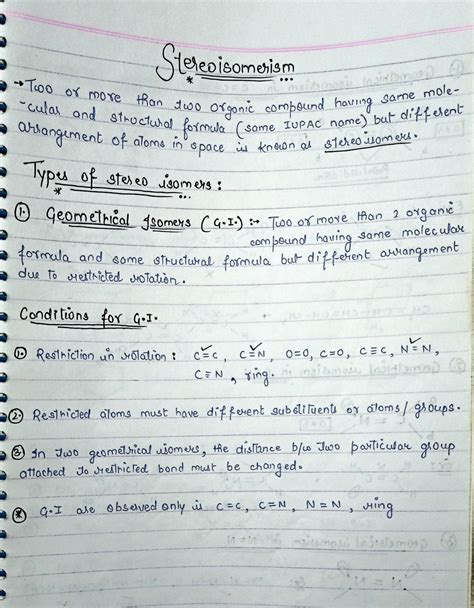 Stereoisomerism
→ Two or more than two organic compound having same mole-
-cular and structural formula (same IUPAC name) but different
arrangement of atoms in space is known as stereoisomers.
Types of stereo isomers:
① Geometrical Isomers (G.I.) :→ Two or more than 2 organic
compound having same molecular
formula and same structural formula but different arrangement
due to restricted rotation.
Conditions for G.I.
① Restriction in rotation : C=C, C=N, O=O, C=O, C≡C, N=N,
C≡N, ring.
② Restricted atoms must have different substituents or atoms/groups.
③ In two geometrical isomers, the distance b/w two particular group
attached to restricted bond must be changed.
G.I are observed only in C=C, C=N, N=N, ring